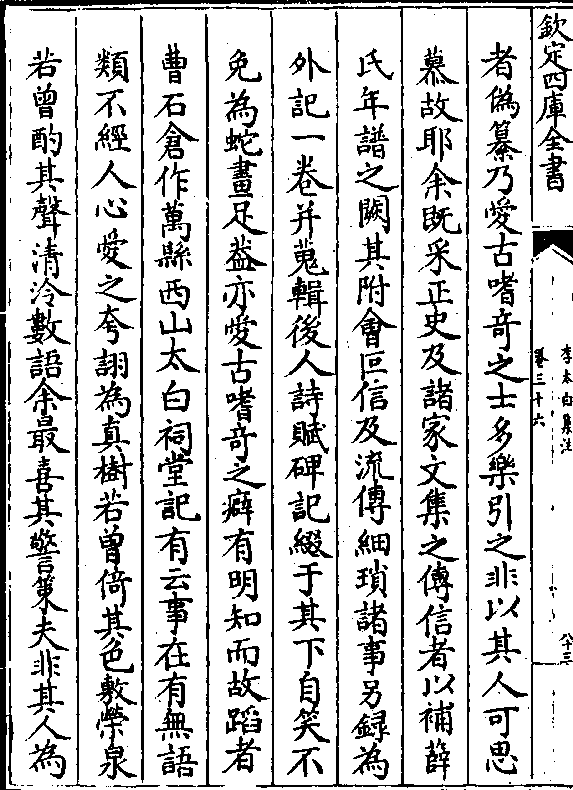 欽定四庫全書
李太白集注
卷三十六
八十三
者偽纂乃愛古嗜奇之士多樂引之非以其人可思
慕故耶余既采正史及諸家文集之傳信者以補薛
氏年譜之闕其附會叵信及流傳細瑣諸事另錄為
外記一卷并蒐輯後人詩賦碑記綴于其下自笑不
免為蛇畫足葢亦愛古嗜奇之癖有明知而故蹈者
曹石倉作萬縣西山太白祠堂記有云事在有無語
類不經人心愛之夸詡為真樹若曾倚其色敷榮泉
若曾酌其聲清泠數語余最喜其警策夫非其人為